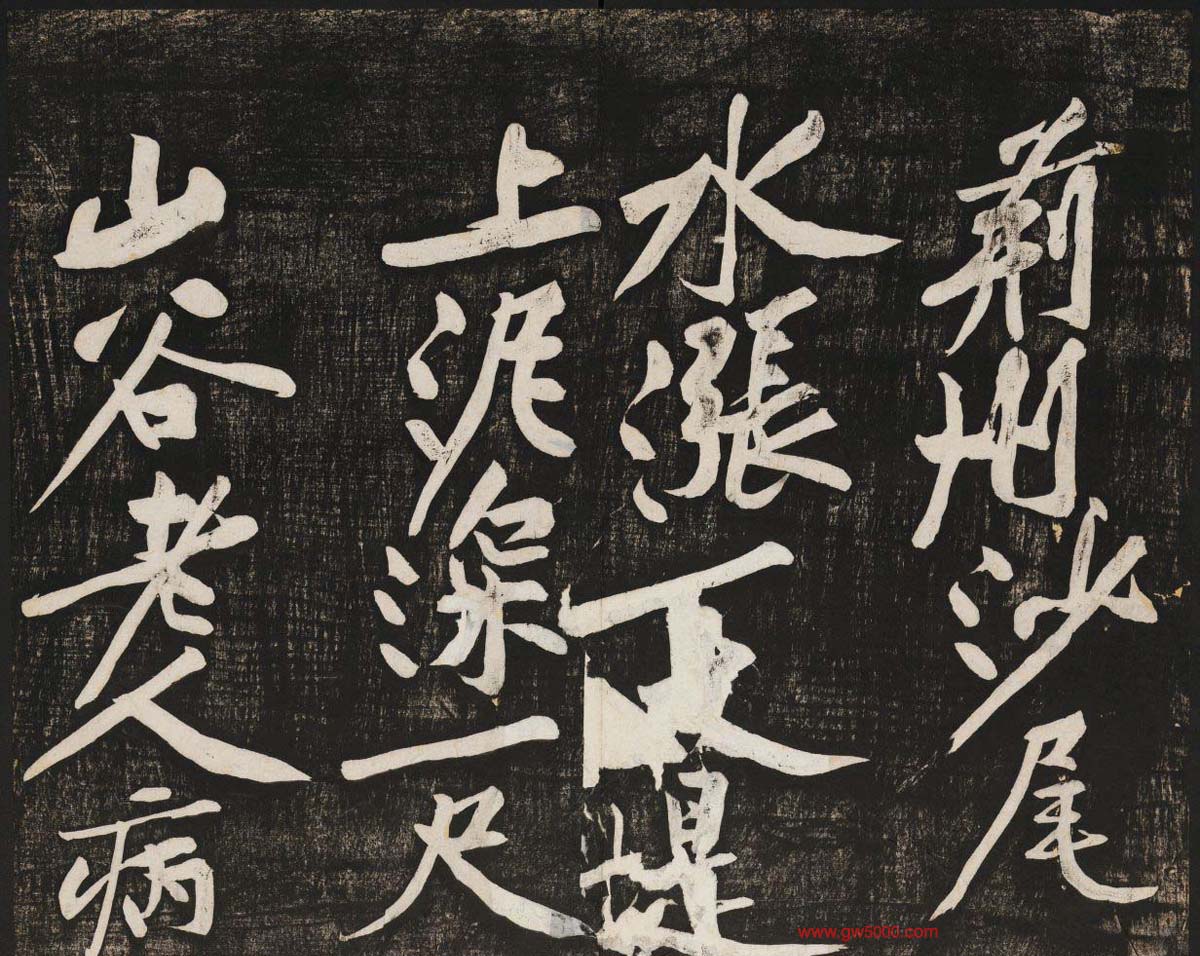 荊州沙尾
水漲一丈堤
上泥深一尺
山谷老人病
www.gw5000.com